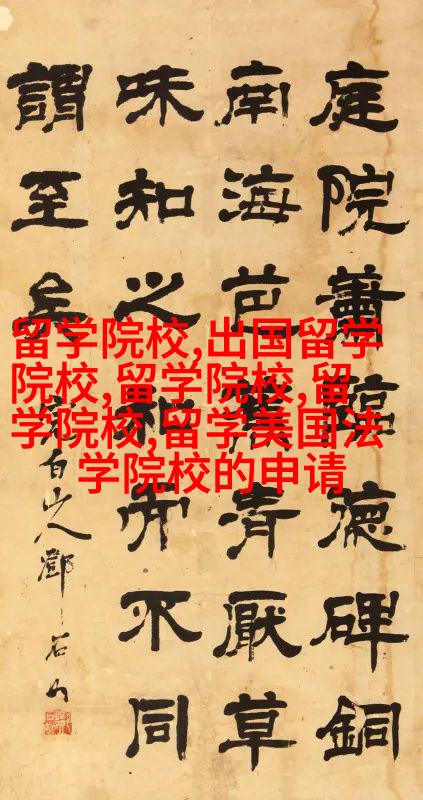 留学院校,出国留学
院校,留学院校,留
学院校,留学美国法
学院校的申请
庭院蕭臨德碑銅
南海芭清厭草
味知之不同
謂至矣
完白山人鄧石如